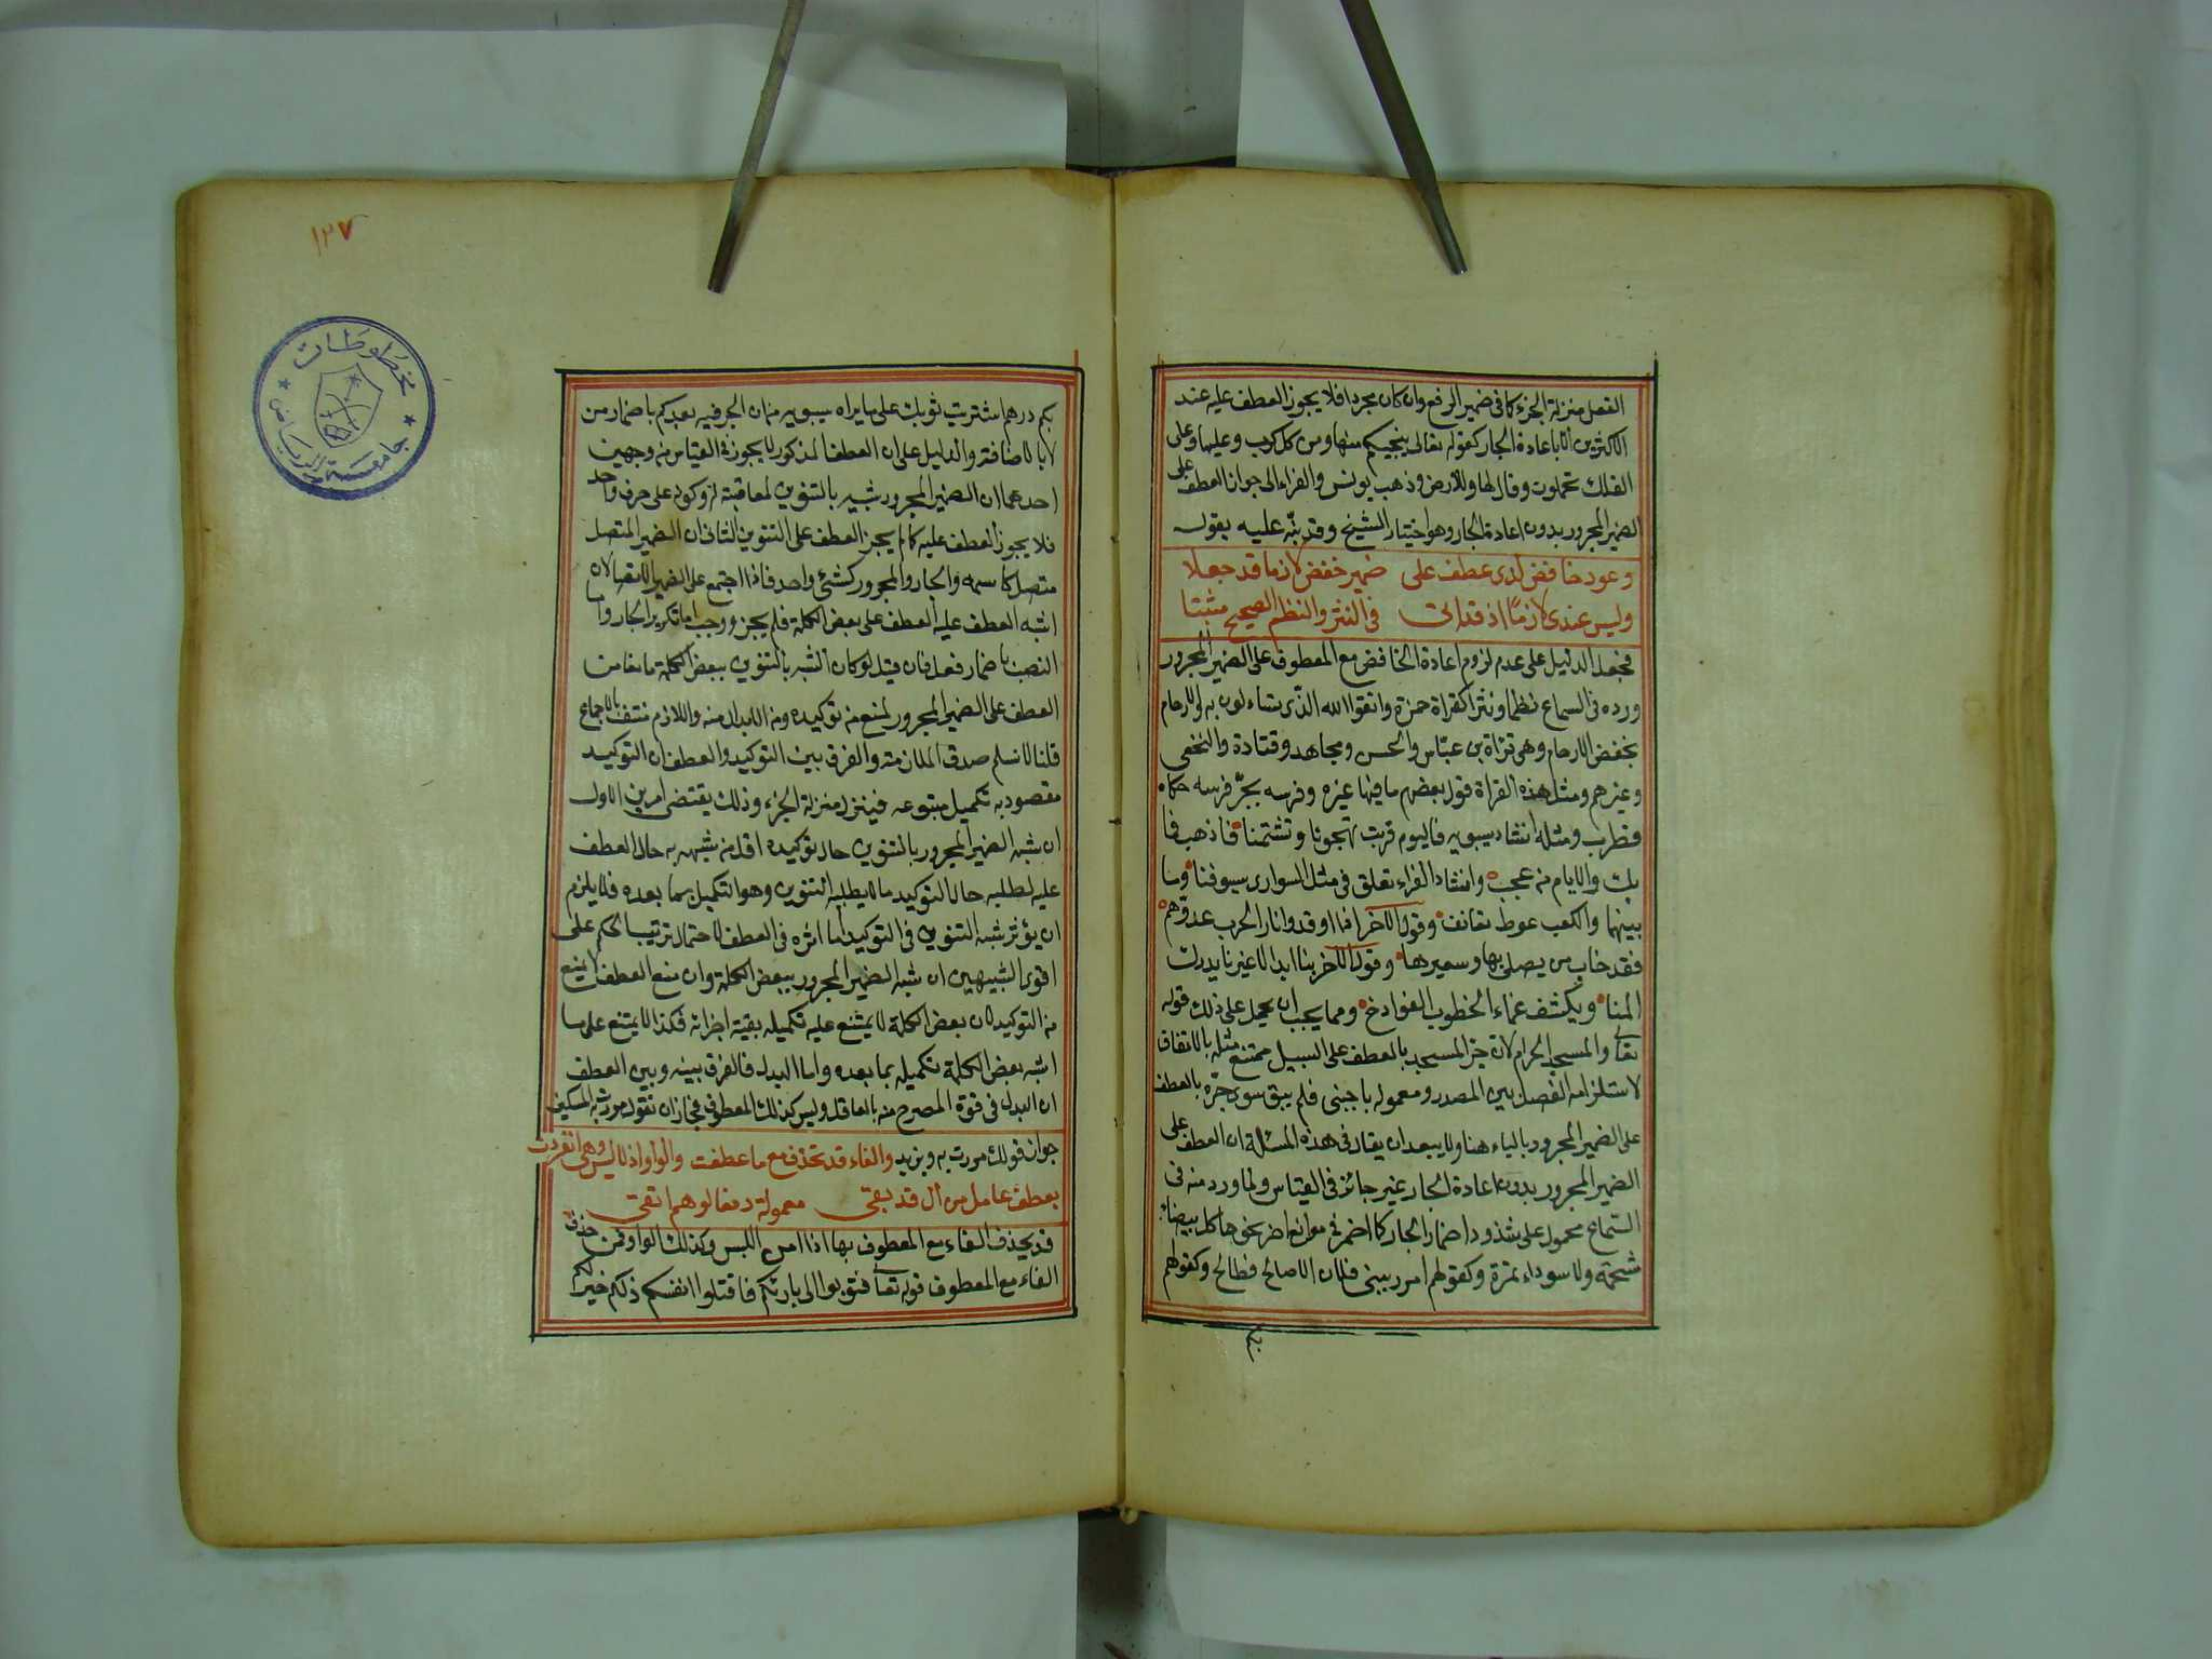 الفعل منزلة الجزء كما في ضمير الرفع وان كان مجردا فلا يجوز العطف عليه عند
الاكثرين الا باعادة الجار كقوله تعالى ينجيكم منها ومن كل كرب وعليها وعلى
الفلك تحملون وقال لها وللارض وذهب يونس والفراء الى جواز العطف على
الضمير المجرور بدون اعادة الجار وهو اختيار الشيخ وقد نبّه عليه بقوله
وعود خافض لدى عطف على ضمير خفض لازما قد جعلا
وليس عندي لازمًا اذ قد اتى في النثر والنظم الصحيح مثبتا
فجعل الدليل على عدم لزوم اعادة الخافض مع المعطوف على الضمير المجرور
ورده في السماع نظما ونثرا كقراة حمزة واتقوا الله الذّي تساءلون به والارحام
بخفض الارحام وهي قراة بن عبّاس والحسن ومجاهد وقتادة والنخعي
وغيرهم ومثل هذه القراة قول بعضهم ما فيها غيره وفرسه بجرّ فرسه حكاه
قطرب ومثله انشاد سيبويه فاليوم قربت تهجونا وتشتمنا فاذهب فما
بك والايام من عجب وانشاد الفراء تعلق في مثل السواري سيوفنا وما
بينهما والكعب غوط نفانف وقول الاخر اذا اوقدوا نارا لحرب عدوّهم
فقد خاب من يصلى بها وسعيرها وقول الاخر بنا ابدا لا غيرنا يدرك
المنا ويكشف غماء الخطوب الفوادح ومما يجب ان يحمل على ذلك قوله
تعالى والمسجد الحرام لان جرّ المسجد بالعطف على السبيل ممتنع مثله بالاتفاق
لاستلزامه الفصل بين المصدر ومعموله باجنبي فلم يبق سوى جرّه بالعطف
على الضمير المجرور بالباء هنا ولا يبعد ان يقال في هذه المسئلة ان العطف على
الضمير المجرور بدون اعادة الجار غير جائز في القياس ولما ورد منه في
السّماع محمول على شذوذ اضمار الجار كما اضمر في مواضع اخر نحو ما كل بيضاء
شحمة ولا سوداء تمرة وكقولهم امرر ببني فلان الا صالح فطالح وكقولهم
بكم
١٢٧
مخطوطات
جامعة الرياض
بكم درهم اشتريت ثوبك على ما يراه سيبويه من ان الجر فيه بعد كم باضمار من
لا بالاضافة والدليل على ان العطف المذكور لا يجوز في القياس من وجهين
احدهما ان الضمير المجرور شبيه بالتنوين لمعاقبته له وكونه على حرف واحد
فلا يجوز العطف عليه كما لم يجز العطف على التنوين الثاني ان الضمير المتصل
متصل كاسمه والجار والمجرور كشئ واحد فاذا اجتمع على الضمير الاتصالان
اشبه العطف عليه العطف على بعض الكلمة فلم يجز ووجب اما تكرير الجار واما
النصب باضمار فعل فان قيل لو كان الشبه بالتنوين ببعض الكلمة مانعا من
العطف على الضمير المجرور لمنع من توكيده ومن الابدال منه واللازم منتف بالاجماع
قلنا لا نسلم صدق الملازمة والفرق بين التوكيد والعطف ان التوكيد
مقصود به تكميل متبوعه فينزل منزلة الجزء وذلك يقتضي امرين الاول
ان شبه الضمير المجرور بالتنوين حال توكيده اقل من شبهه به حال العطف
عليه لطلبه حال التوكيد ما لا يطلبه التنوين وهو التكميل بما بعده فلا يلزم
ان يؤثر شبه التنوين في التوكيد ما اثره في العطف لاحتمال ترتيب الحكم على
اقوى الشبيهين ان شبه الضمير المجرور ببعض الكلمة وان منع العطف لا يمنع
من التوكيد لان بعض الكلمة لا يمتنع عليه تكميله بقية اجزائه فكذا لا يمتنع على ما
اشبه بعض الكلمة تكميله بما بعده واما البدل فالفرق بينه وبين العطف
ان البدل في قوة المصرح معه بالعامل وليس كذلك المعطوف فجاز ان تقول مررت به المسكين
جواز قولك مررت به وبزيد والفاء قد تحذف مع ما عطفت والواو اذ لا لبس وهي انفردت
بعطف عامل مزال قد بقي معموله دفعا لوهم اتقي
قد يحذف الفاء مع المعطوف بها اذا امن اللبس وكذلك الواو فمن حذف
الفاء مع المعطوف قوله تعالى فتوبوا الى بارئكم فاقتلوا انفسكم ذلكم خير لكم